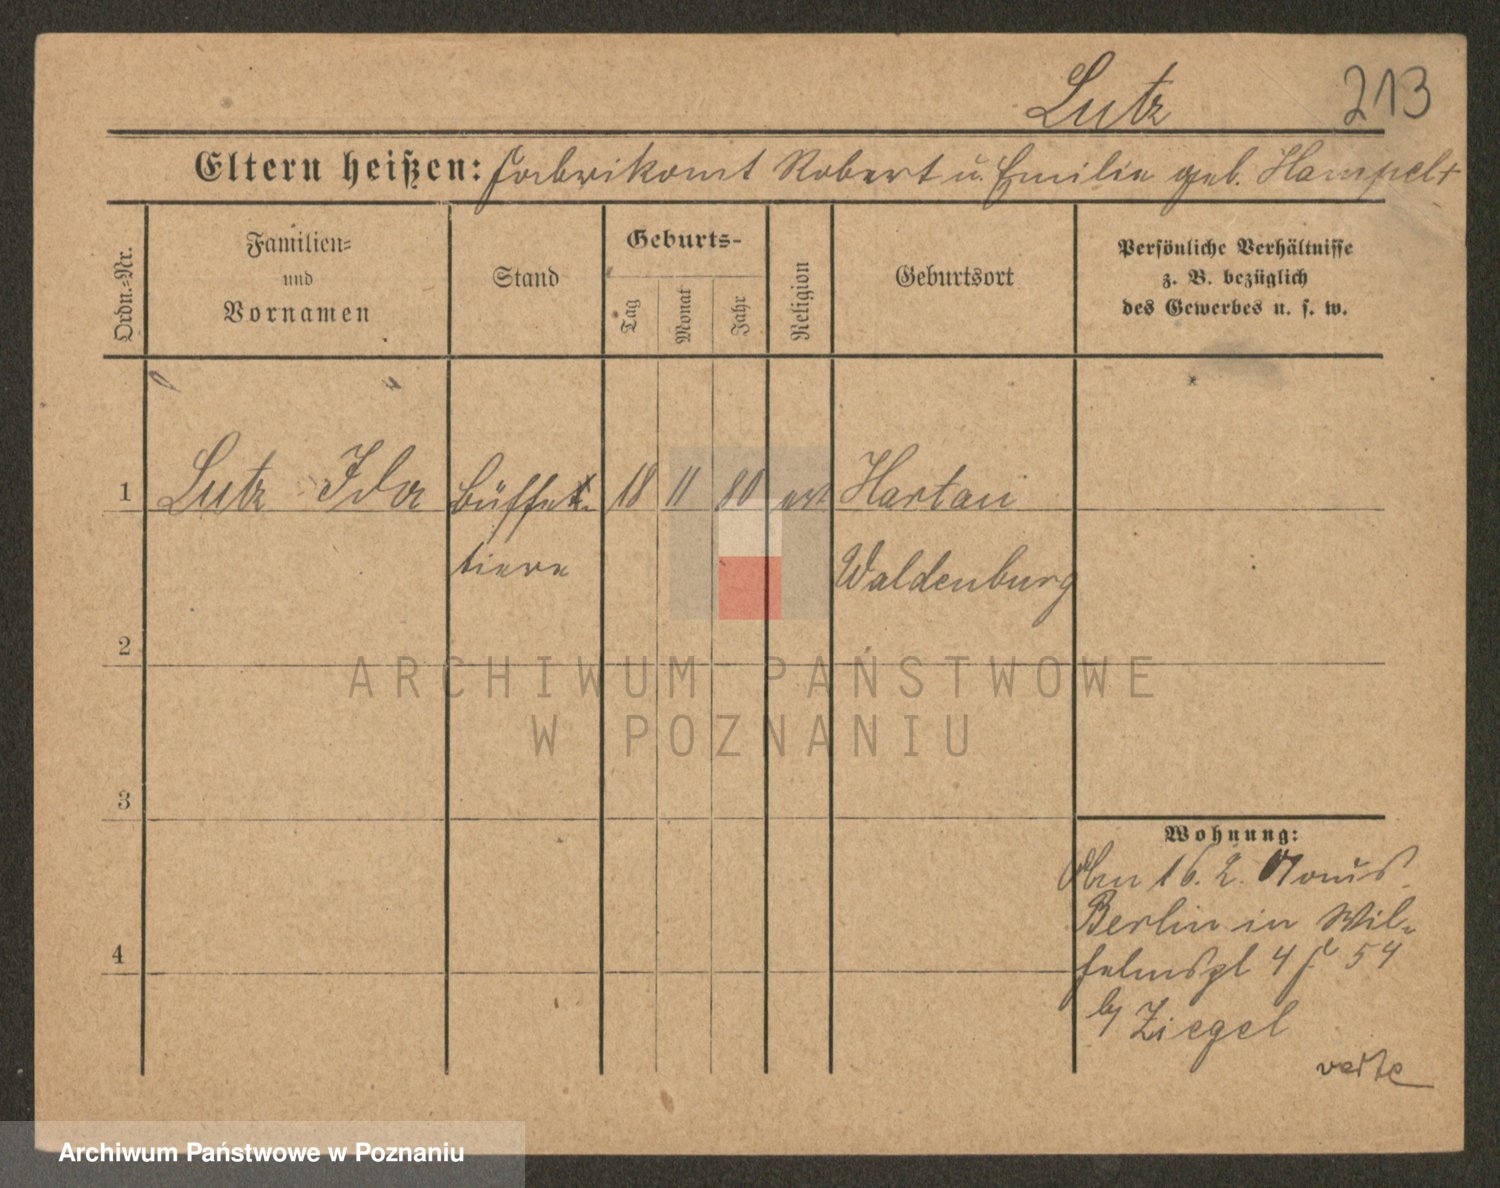 Lutz 213
Eltern heißen: Fabrikant Robert u. Emilie geb. Hampel
Ordn.-Nr.
Familien-
und
Vornamen
Stand
Geburts-
Tag
Monat
Jahr
Religion
Geburtsort
Persönliche Verhältnisse
z. B. bezüglich
des Gewerbes u. s. w.
1 Lutz Ida Büffet- 18 11 80 Hartau
tiere Waldenburg
2
ARCHIWUM PAŃSTWOWE
W POZNANIU
3
Wohnung:
16. 2.
Berlin in Wil-
4 helmspl 4 54
by Ziegel
verte
Archiwum Państwowe w Poznaniu